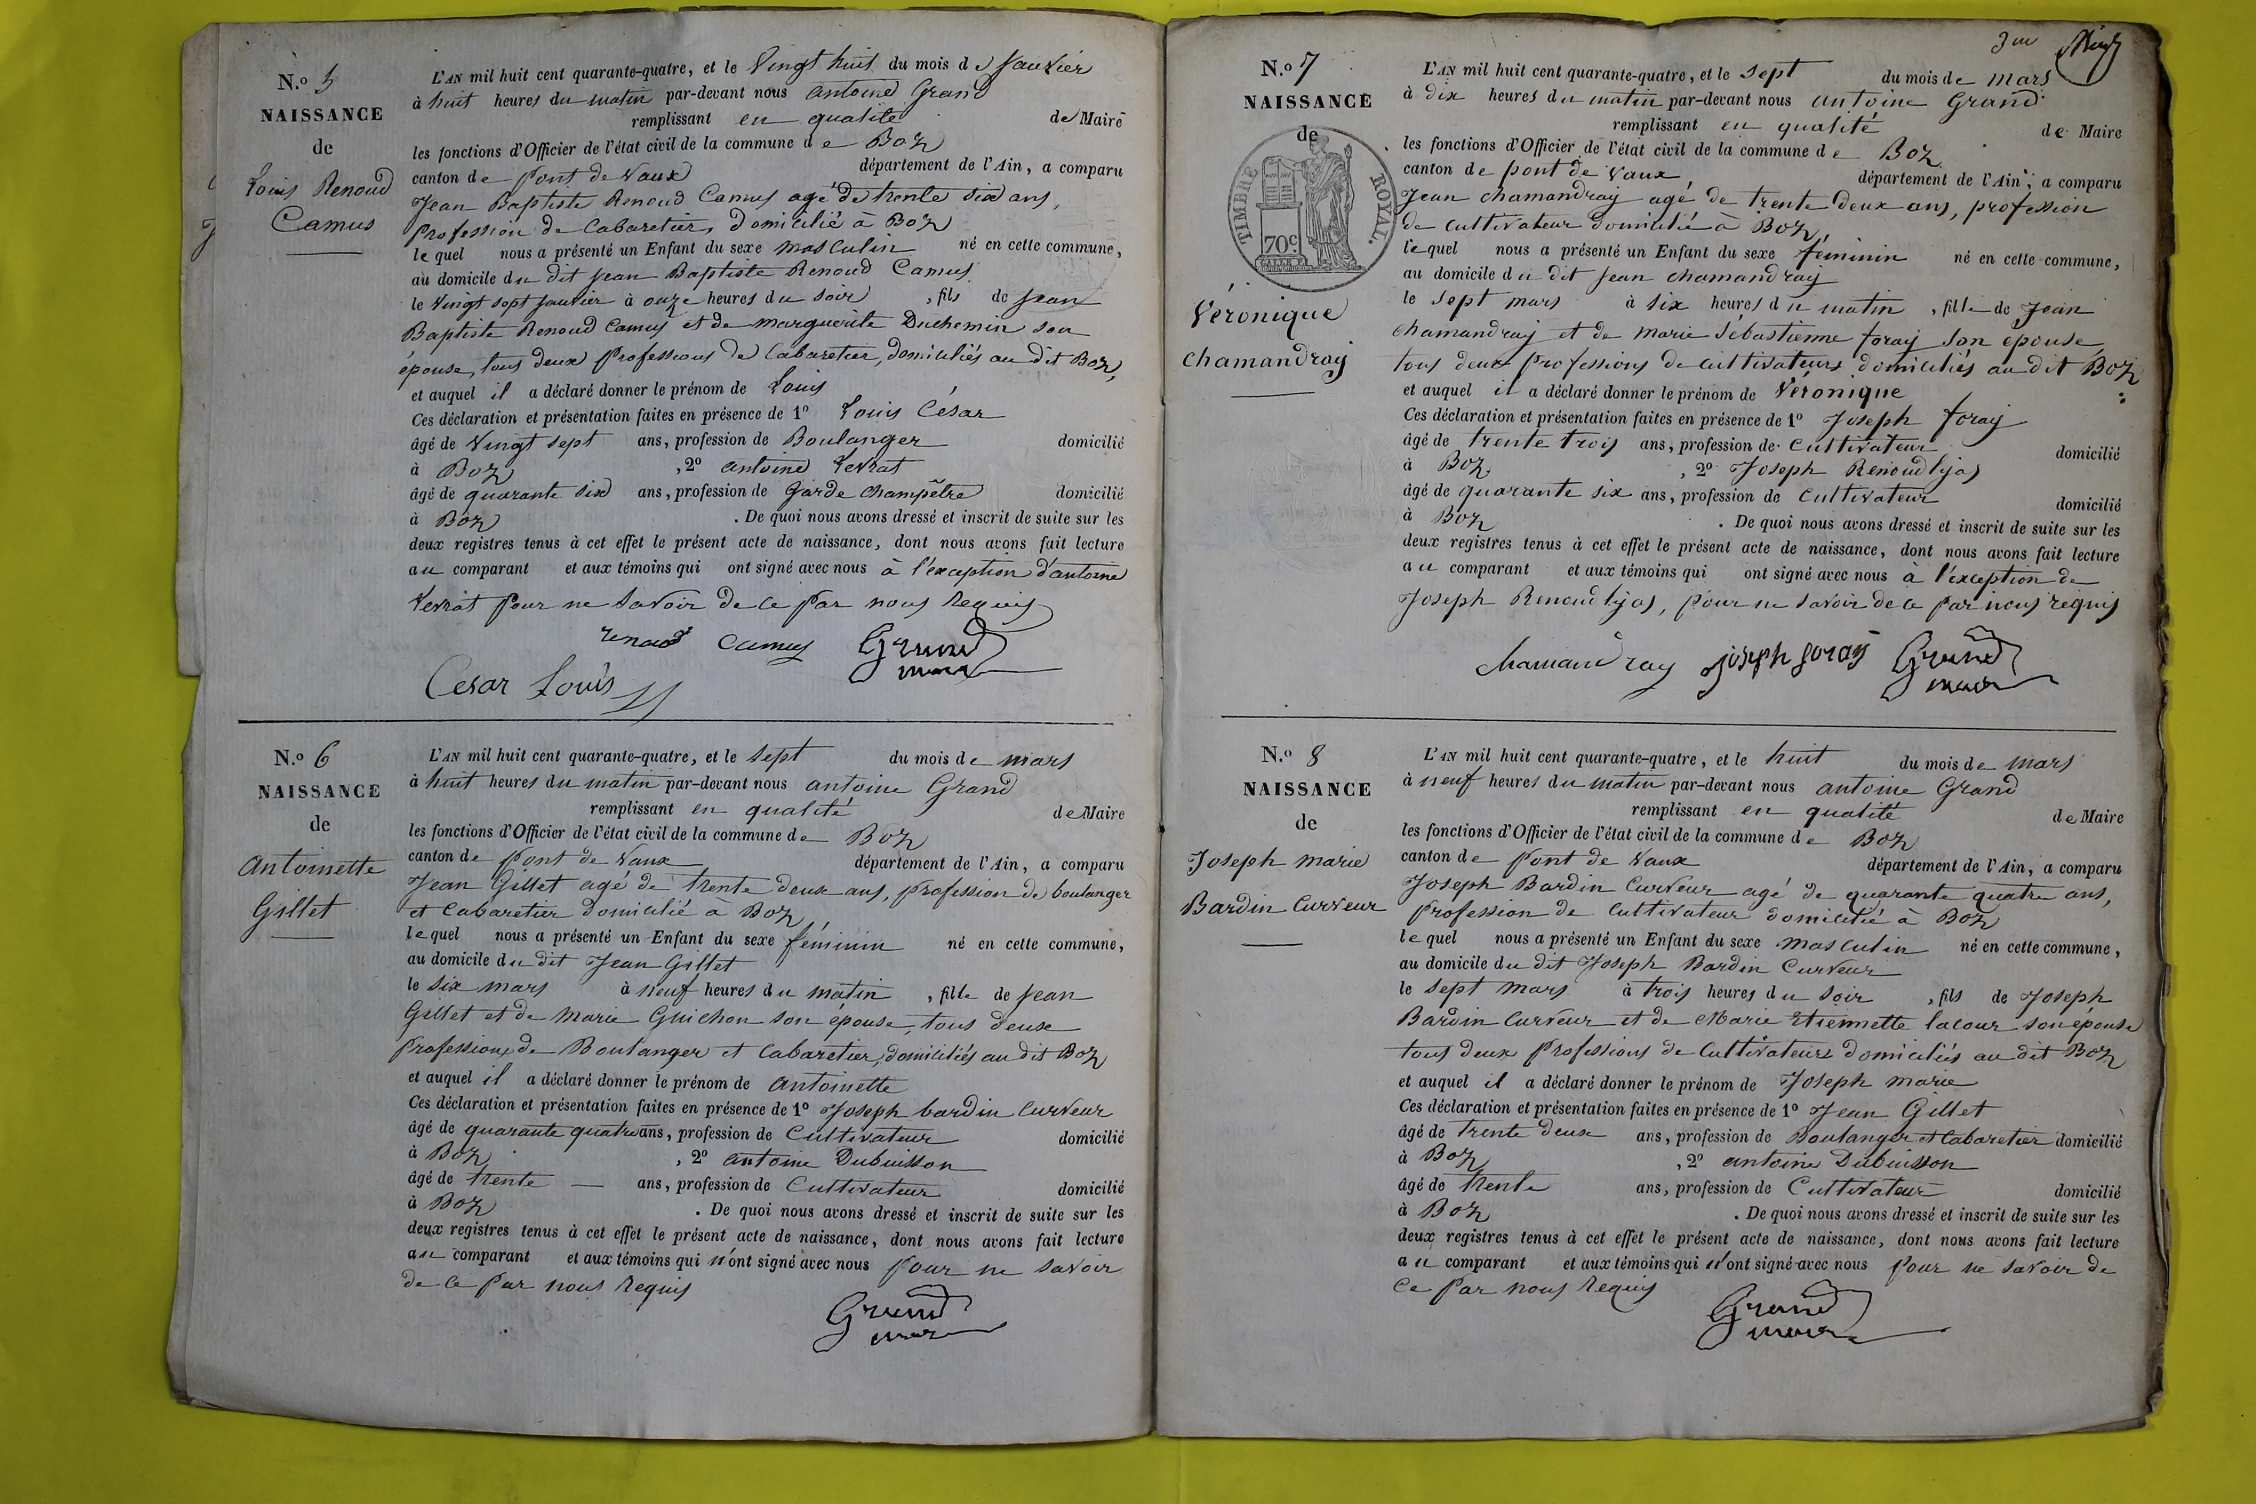 N.o 5
NAISSANCE
de
Louis Renoud
Camus
L'AN mil huit cent quarante-quatre, et le Vingt huit du mois de Janvier
à huit heures du matin par-devant nous antoine Grand
remplissant en qualité de Maire
les fonctions d'Officier de l'état civil de la commune de Boz
canton de Pont de Vaux département de l'Ain, a comparu
Jean Baptiste Renoud Camus agé de trente six ans,
profession de Cabaretier, domicilié à Boz
lequel nous a présenté un Enfant du sexe masculin né en cette commune,
au domicile du dit Jean Baptiste Renoud Camus
le Vingt sept Janvier à onze heures du soir , fils de Jean
Baptiste Renoud Camus et de marguerite Duchemin son
épouse, tous deux Professions de Cabaretier, domiciliés au dit Boz,
et auquel il a déclaré donner le prénom de Louis
Ces déclaration et présentation faites en présence de 1o Louis César
âgé de Vingt sept ans, profession de Boulanger domicilié
à Boz , 2o antoine Verrat
âgé de quarante six ans, profession de Garde champêtre domicilié
à Boz . De quoi nous avons dressé et inscrit de suite sur les
deux registres tenus à cet effet le présent acte de naissance, dont nous avons fait lecture
au comparant et aux témoins qui ont signé avec nous à l'exception d'antoine
Verrat pour ne savoir de ce par nous Requis
renoud camus Grand
maire
Cesar Louis
N.o 6
NAISSANCE
de
Antoinette
Gillet
L'AN mil huit cent quarante-quatre, et le sept du mois de mars
à huit heures du matin par-devant nous antoine Grand
remplissant en qualité de Maire
les fonctions d'Officier de l'état civil de la commune de Boz
canton de Pont de Vaux département de l'Ain, a comparu
Jean Gillet agé de trente deux ans, profession de boulanger
et Cabaretier domicilié à Boz,
lequel nous a présenté un Enfant du sexe féminin né en cette commune,
au domicile du dit Jean Gillet
le six mars à neuf heures du matin , fille de Jean
Gillet et de Marie Guichon son épouse, tous deux
Professions de Boulanger et Cabaretier, domiciliés au dit Boz
et auquel il a déclaré donner le prénom de antoinette
Ces déclaration et présentation faites en présence de 1o Joseph bardin Curveur
âgé de quarante quatre ans, profession de Cultivateur domicilié
à Boz , 2o antoine Dubuisson
âgé de trente — ans, profession de Cultivateur domicilié
à Boz . De quoi nous avons dressé et inscrit de suite sur les
deux registres tenus à cet effet le présent acte de naissance, dont nous avons fait lecture
au comparant et aux témoins qui n'ont signé avec nous pour ne savoir
de ce par nous Requis
Grand
maire
3me
N.o 7
NAISSANCE
de
TIMBRE ROYAL.
70c.
Véronique
Chamandray
L'AN mil huit cent quarante-quatre, et le sept du mois de mars
à dix heures du matin par-devant nous antoine Grand
remplissant en qualité de Maire
les fonctions d'Officier de l'état civil de la commune de Boz
canton de pont de Vaux département de l'Ain, a comparu
Jean Chamandray agé de trente deux ans, profession
de cultivateur domicilié à Boz,
lequel nous a présenté un Enfant du sexe féminin né en cette commune,
au domicile du dit Jean Chamandray
le sept mars à six heures du matin , fille de Jean
Chamandray et de Marie Sébastienne foray son épouse
tous deux Professions de cultivateurs domiciliés au dit Boz
et auquel il a déclaré donner le prénom de Véronique
Ces déclaration et présentation faites en présence de 1o Joseph foray
âgé de trente trois ans, profession de Cultivateur domicilié
à Boz, , 2o Joseph Renoud lyas
âgé de quarante six ans, profession de Cultivateur domicilié
à Boz . De quoi nous avons dressé et inscrit de suite sur les
deux registres tenus à cet effet le présent acte de naissance, dont nous avons fait lecture
au comparant et aux témoins qui ont signé avec nous à l'exception de
Joseph Renoud lyas, pour ne savoir de ce par nous requis
chamandray joseph foray Grand
maire
N.o 8
NAISSANCE
de
Joseph marie
Bardin Curveur
L'AN mil huit cent quarante-quatre, et le huit du mois de mars
à neuf heures du matin par-devant nous antoine Grand
remplissant en qualité de Maire
les fonctions d'Officier de l'état civil de la commune de Boz
canton de Pont de Vaux département de l'Ain, a comparu
Joseph Bardin Curveur agé de quarante quatre ans,
profession de Cultivateur domicilié à Boz
lequel nous a présenté un Enfant du sexe masculin né en cette commune,
au domicile du dit Joseph Bardin Curveur
le sept mars à trois heures du soir , fils de Joseph
Bardin Curveur et de Marie Etiennette lacour son épouse
tous deux Professions de Cultivateurs domiciliés au dit Boz
et auquel il a déclaré donner le prénom de Joseph marie
Ces déclaration et présentation faites en présence de 1o Jean Gillet
âgé de trente deux ans, profession de Boulanger et Cabaretier domicilié
à Boz , 2o antoine Dubuisson
âgé de trente ans, profession de Cultivateur domicilié
à Boz . De quoi nous avons dressé et inscrit de suite sur les
deux registres tenus à cet effet le présent acte de naissance, dont nous avons fait lecture
au comparant et aux témoins qui n'ont signé avec nous pour ne savoir de
ce par nous Requis
Grand
maire